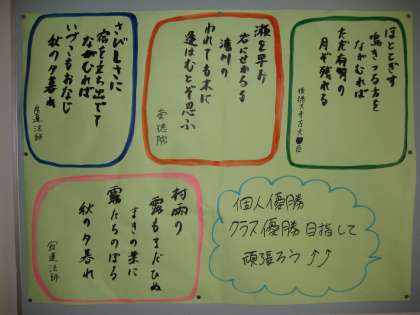 ほととぎす
鳴きつる方を
ながむれば
ただ有明の
月ぞ残れる
後徳大寺左大臣
瀬を早み
岩にせかるる
滝川の
われても末に
逢はむとぞ思ふ
崇徳院
さびしさに
宿を立ち出でて
ながむれば
いづこもおなじ
秋の夕暮れ
良暹法師
村雨の
露もまだひぬ
まきの葉に
霧たちのぼる
秋の夕暮れ
寂蓮法師
個人優勝
クラス優勝目指して
頑張ろう↑↑